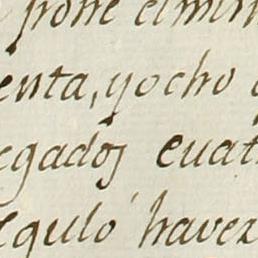 pone elmin
enta, y ocho
egados cuat
equlo havez